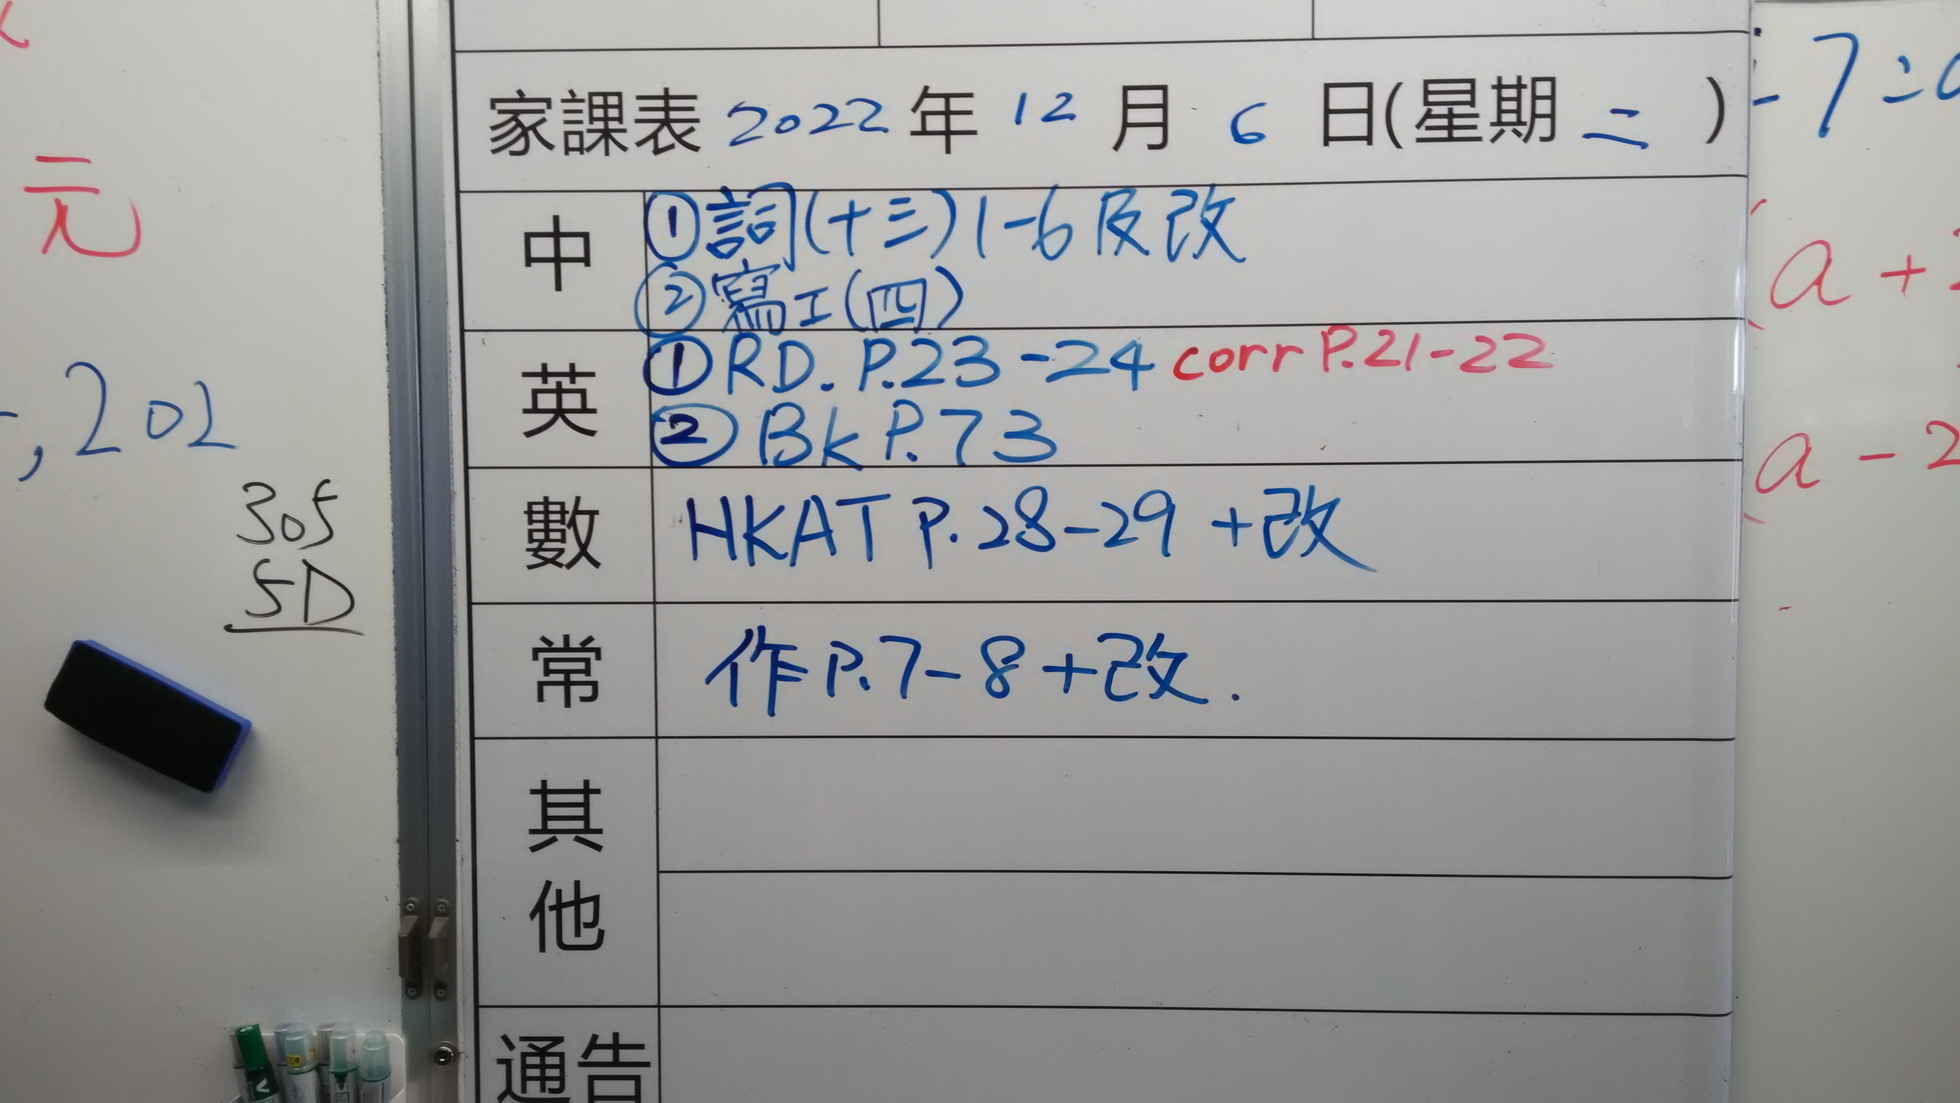 元
, 202
305
5D
家課表 2022 年 12 月 6 日(星期 二 )
中
①詞(十三)1-6及改
②寫工(四)
英
①RD. P.23-24 corr P.21-22
②Bk P.73
數
HKAT P.28-29 +改
常
作P.7-8+改.
其他
通告
-7=
a+
a-2